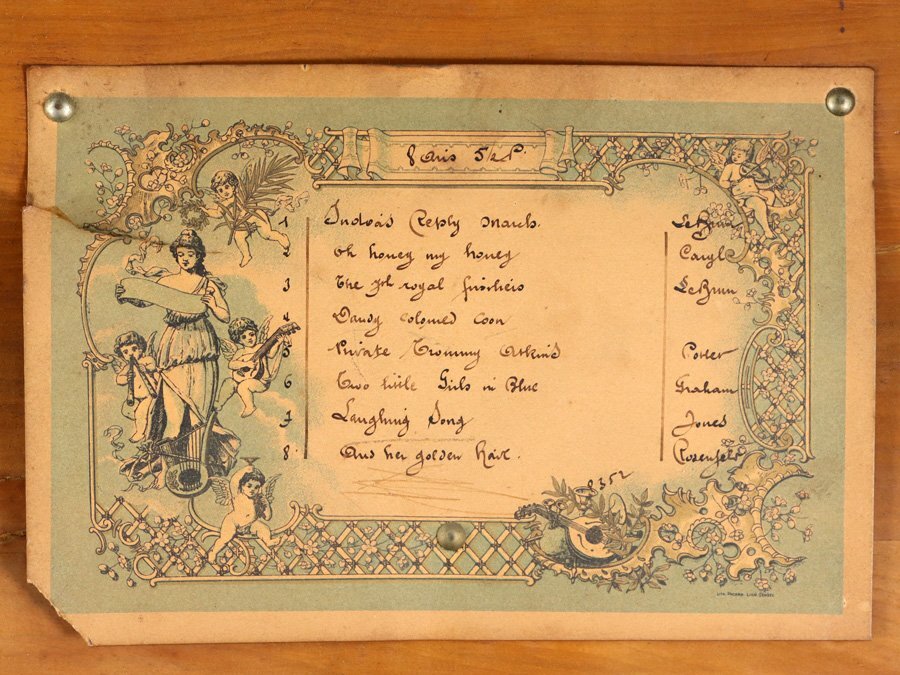 8 Airs 5/2 P.
1 India's Reply March. LeBrunn
2 Oh honey my honey Caryll
3 The 7th royal fusiliers LeBrun
4 Dandy coloured coon
5 Private Tommy Atkins Potter
6 Two little Girls in Blue Graham
7 Laughing Song Jones
8 And her golden hair. Rosenfeld
8352